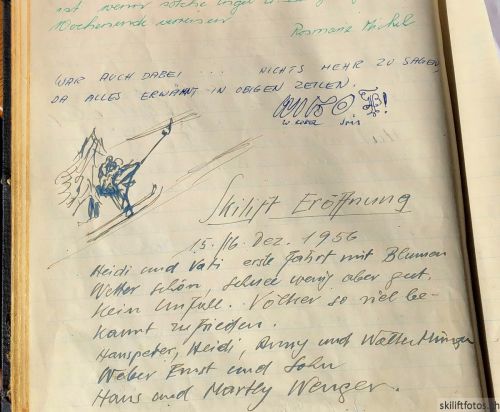 ist wenn solche Engel
Wochenende
Rosmarie Michel
WAR AUCH DABEI ... NICHTS MEHR ZU SAGEN,
DA ALLES ERWÄHNT IN OBIGEN ZEILEN.
Skilift Eröffnung
15./16. Dez. 1956
Heidi und Vati erste Fahrt mit Blumen
Wetter schön, schnee wenig aber gut.
Kein Unfall. Völker so viel be-
kannt zufrieden.
Hanspeter, Heidi, Anny und Walter
Weber Ernst und Sohn
Hans und Martly Wenger.
skiliftfotos.ch